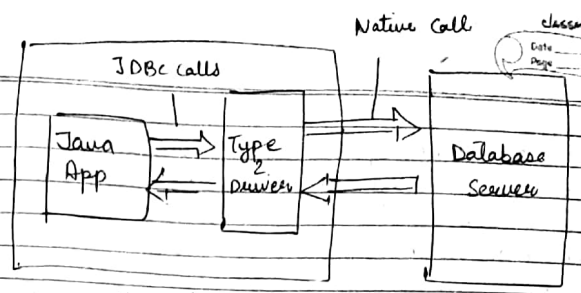 Native Call
classm
Date
Page
JDBC Calls
Java
App
Type
2
Driver
Database
Server